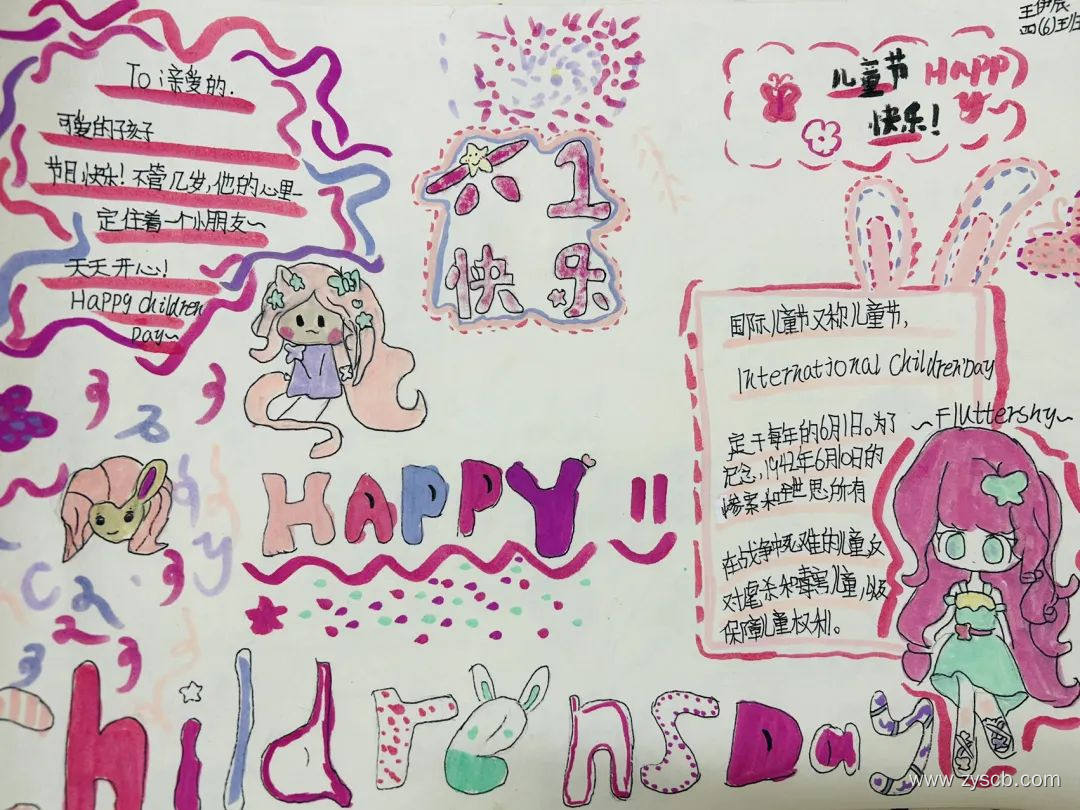 王伊辰
四(6)班
To i亲爱的.
可爱的孩子
节日快乐!不管几岁,他的心里一
定住着一个小朋友~
天天开心!
Happy children
Day~
六1
快乐
儿童节 Happ
快乐! y~
国际儿童节又称儿童节,
International Children'Day
~Fluttershy~
定于每年的6月1日。为了
纪念,1942年6月10日的
惨案和全世界所有
在战争中死难的儿童,反
对虐杀和毒害儿童,以及
保障儿童权利。
HAPPY
ChildrensDay
www.zyscb.com